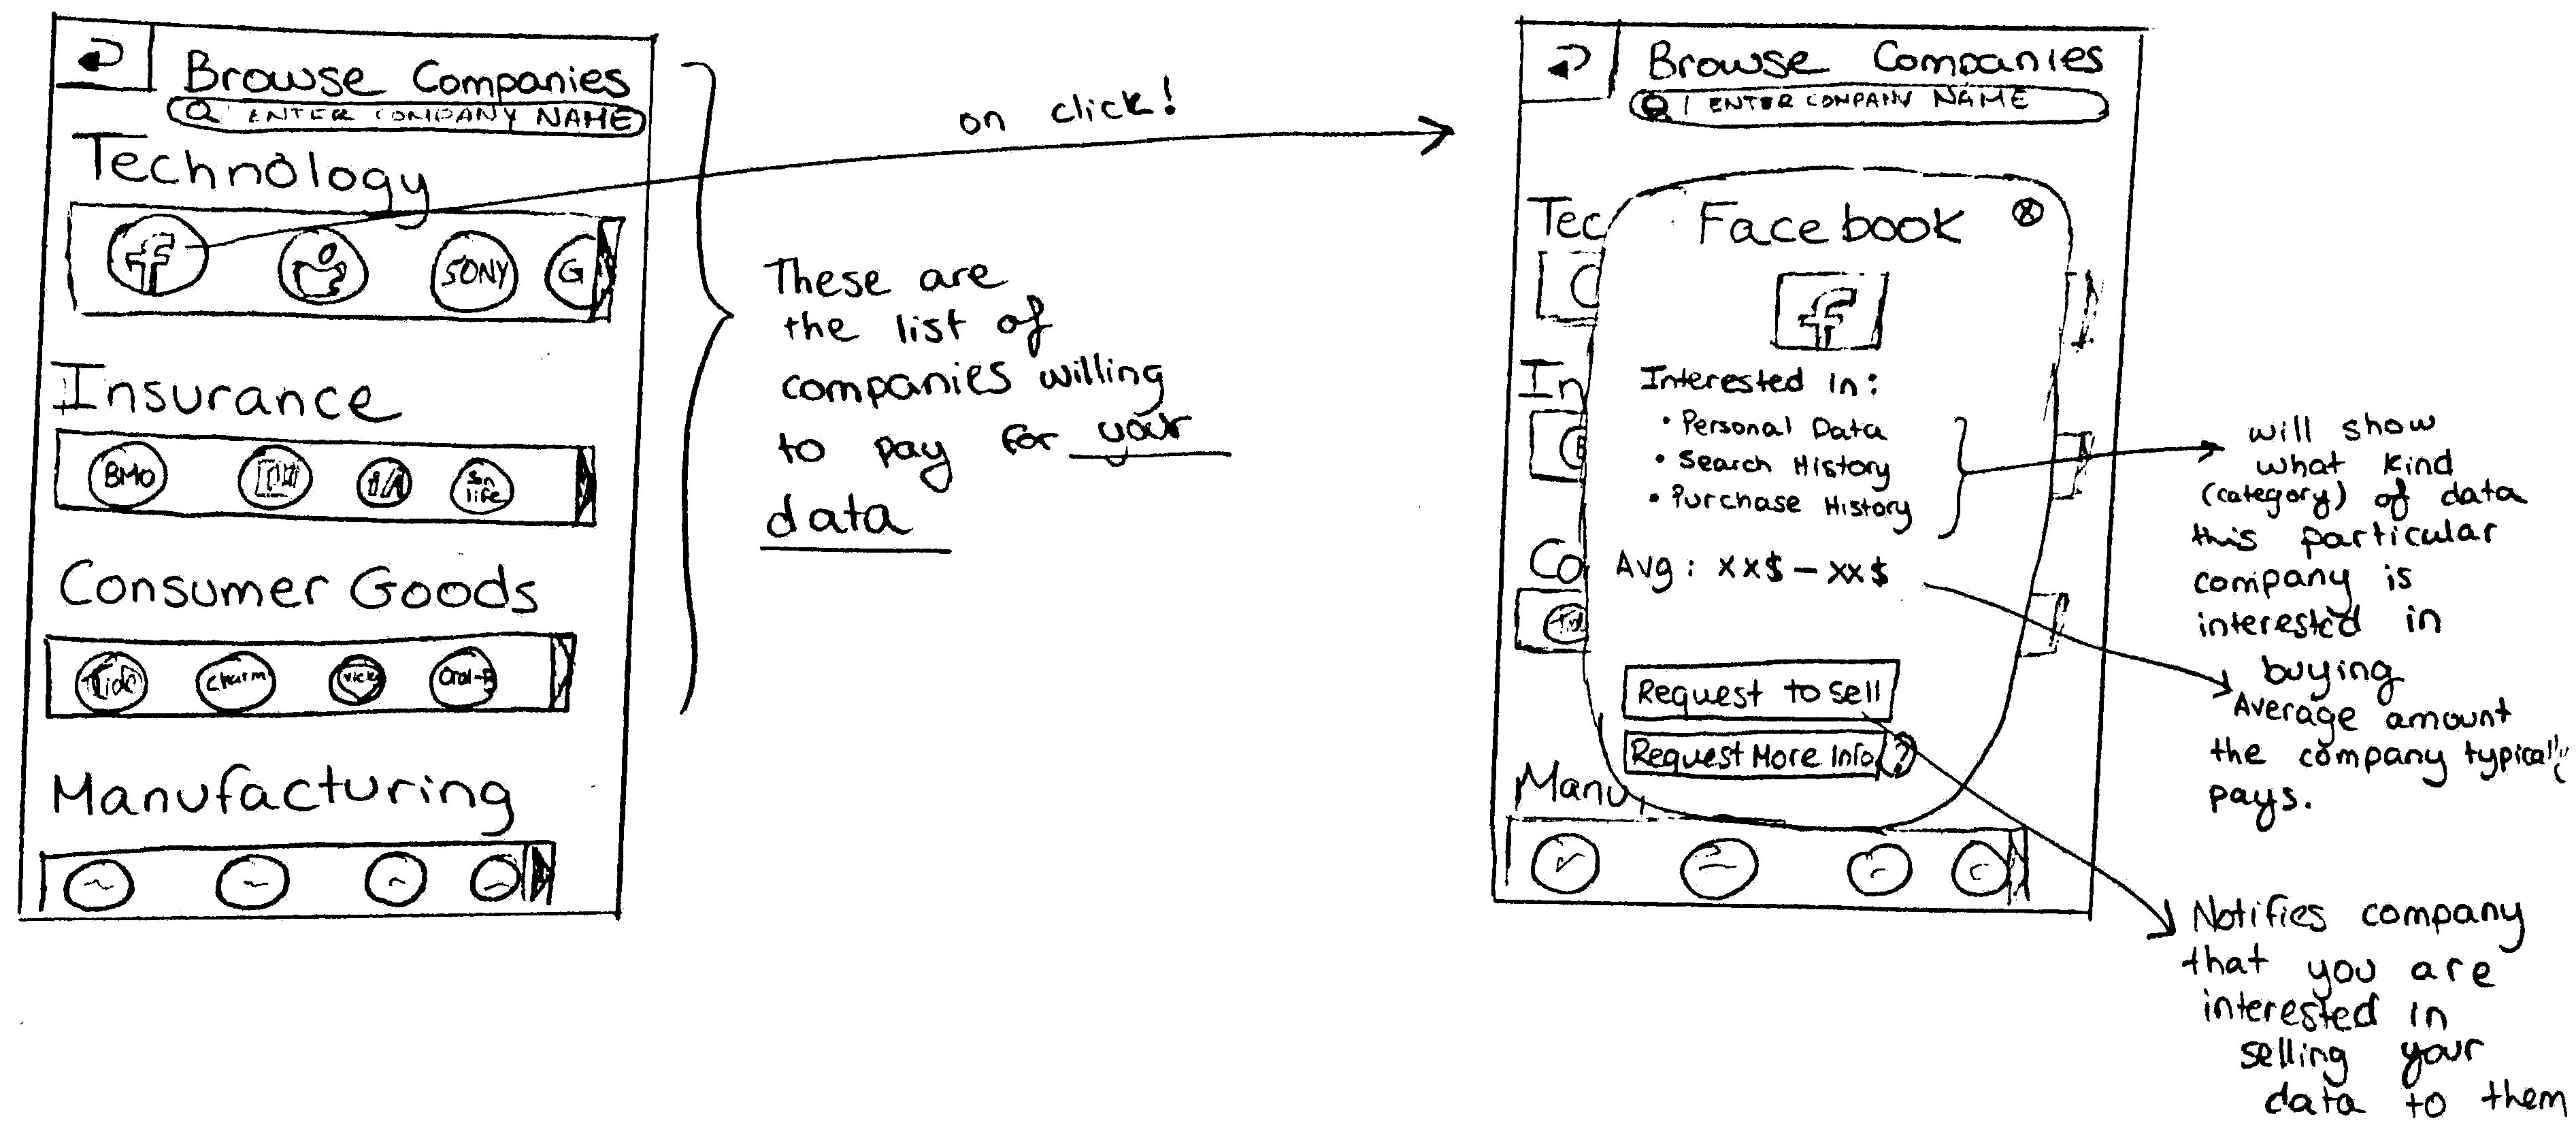 Browse Companies
ENTER COMPANY NAME
Technology
f
SONY
G
Insurance
BMO
iA
Sun
life
Consumer Goods
Tide
Charm
Vicks
Oral-B
Manufacturing
These are
the list of
companies willing
to pay for your
data
on click!
Browse Companies
ENTER COMPANY NAME
Tec
In
Co
Manu
Facebook
f
Interested in:
• Personal Data
• Search History
• Purchase History
Avg: xx$ – xx$
Request to sell
Request More Info ?
will show
what kind
(category) of data
this particular
company is
interested in
buying
Average amount
the company typically
pays.
Notifies company
that you are
interested in
selling your
data to them